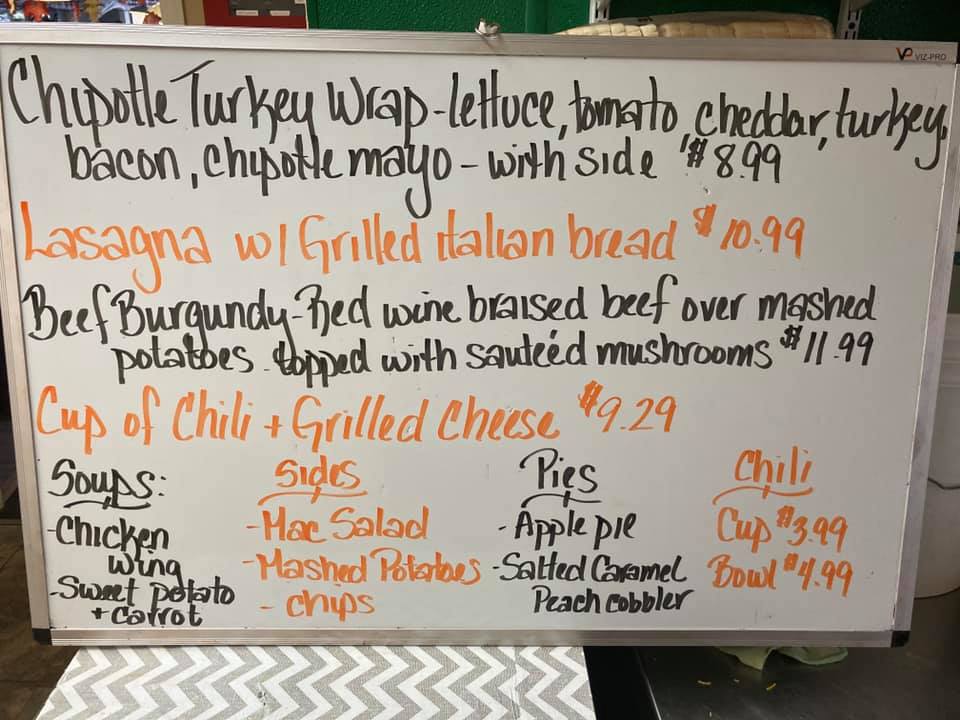 VP VIZ-PRO
Chipotle Turkey Wrap - lettuce, tomato, cheddar, turkey,
bacon, chipotle mayo - with side $8.99
Lasagna w/ Grilled italian bread $10.99
Beef Burgundy - Red wine braised beef over mashed
potatoes topped with sauteéd mushrooms $11.99
Cup of Chili + Grilled Cheese $9.29
Soups:
- Chicken
Wing
- Sweet potato
+ carrot
Sides
- Mac Salad
- Mashed Potatoes
- chips
Pies
- Apple pie
- Salted Caramel
Peach cobbler
Chili
Cup $3.99
Bowl $4.99